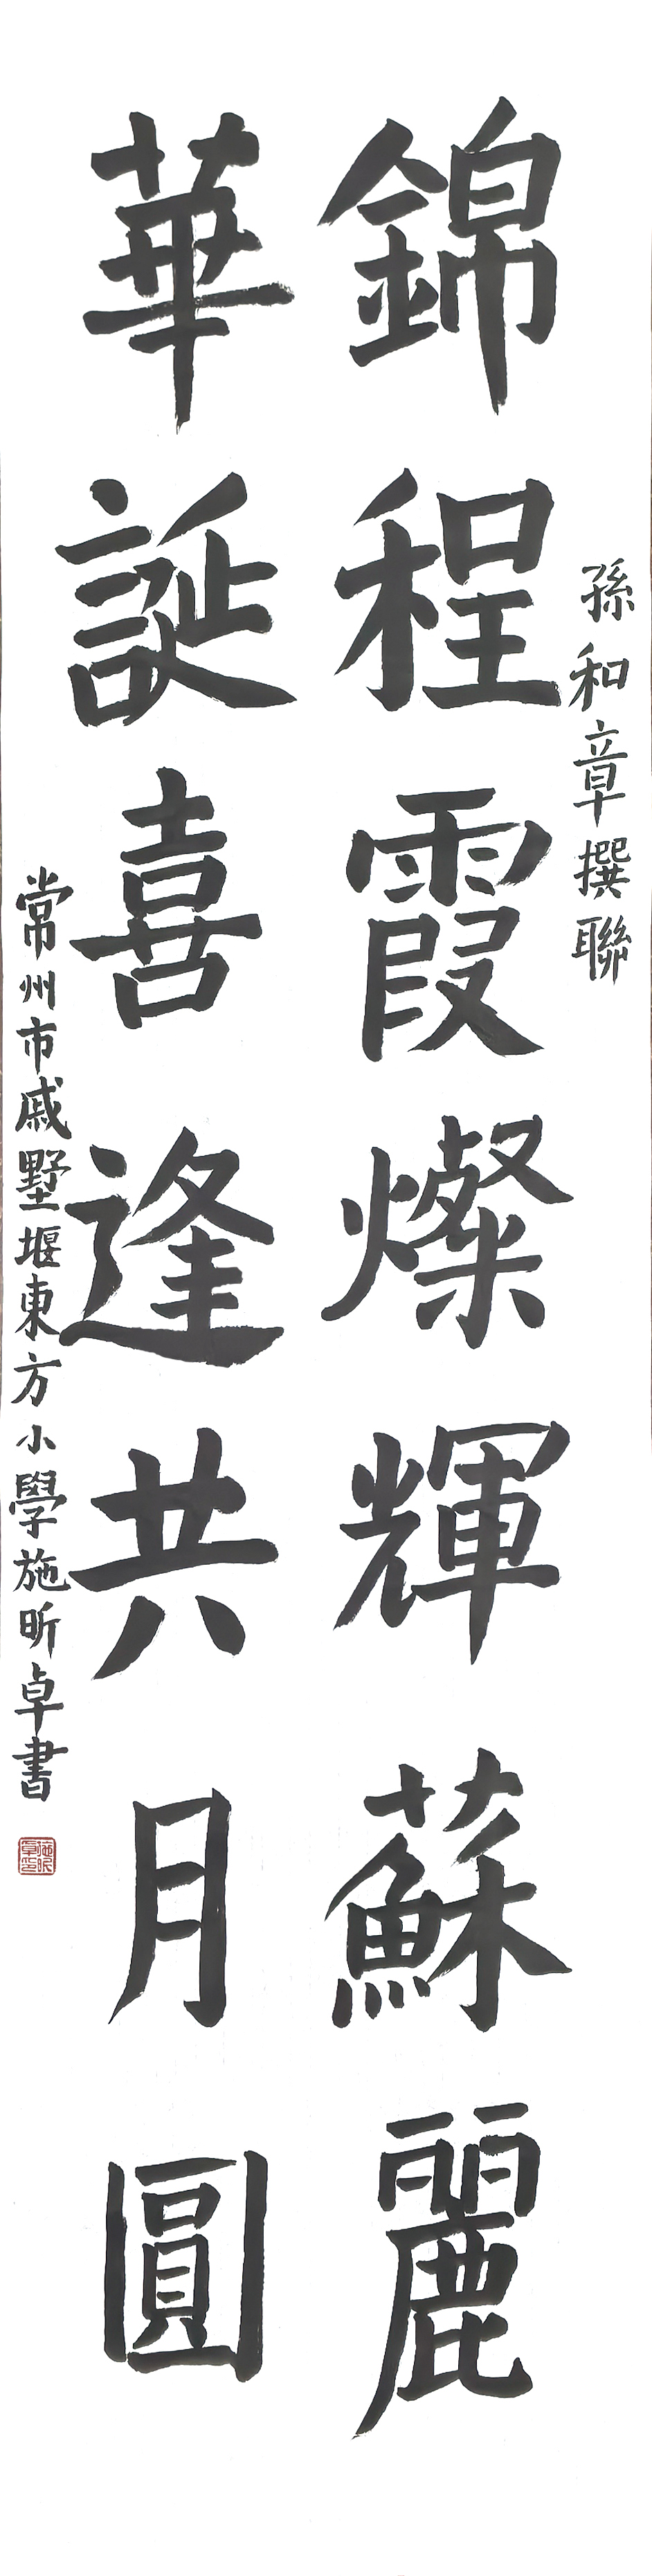 孫和章撰聯
錦程霞燦輝蘇麗
華誕喜逢共月圓
常州市戚墅堰東方小學施昕卓書